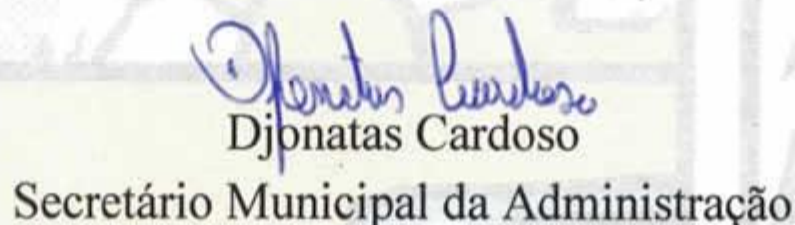 Djonatas Cardoso
Djonatas Cardoso
Secretário Municipal da Administração